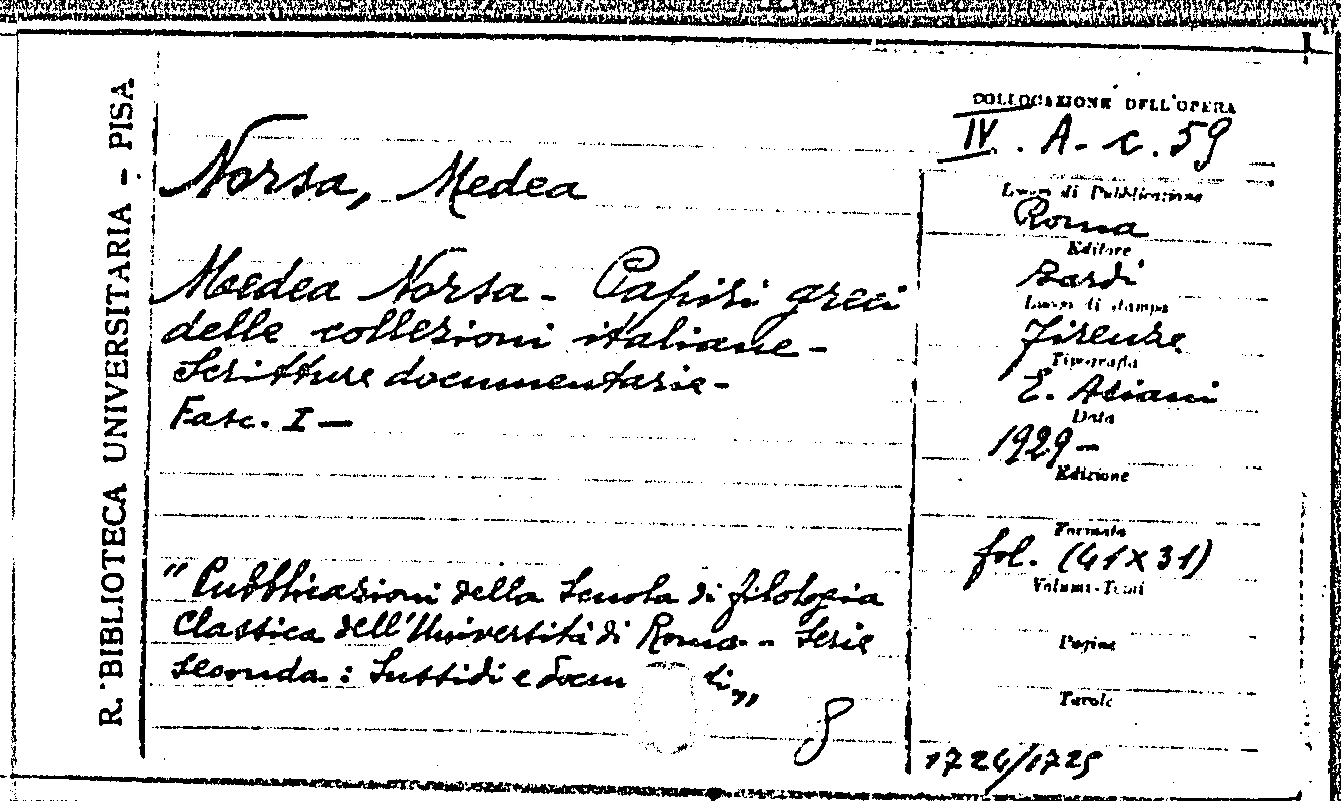 R. BIBLIOTECA UNIVERSITARIA - PISA
Norsa, Medea
Medea Norsa - Papiri greci
delle collezioni italiane -
Scritture documentarie -
Fasc. I —
"Pubblicazioni della Scuola di filologia
Classica dell'Università di Roma - Serie
seconda: Sussidi e docu ti"
COLLOCAZIONE DELL'OPERA
IV. A. c. 59
Luogo di Pubblicazione
Roma
Editore
Bardi
Luogo di stampa
Firenze
Tipografia
E. Ariani
Data
1929 -
Edizione
Formato
fol. (41 x 31)
Volumi-Tomi
Pagine
Tavole
1724/1725